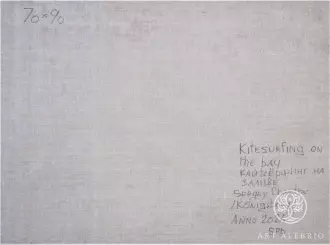 70×90
KITESURFING ON
THE BAY
КАЙТСЕРФИНГ НА
ЗАЛИВЕ
SERGEY
ANNO
СПб
ART ALEBRIO